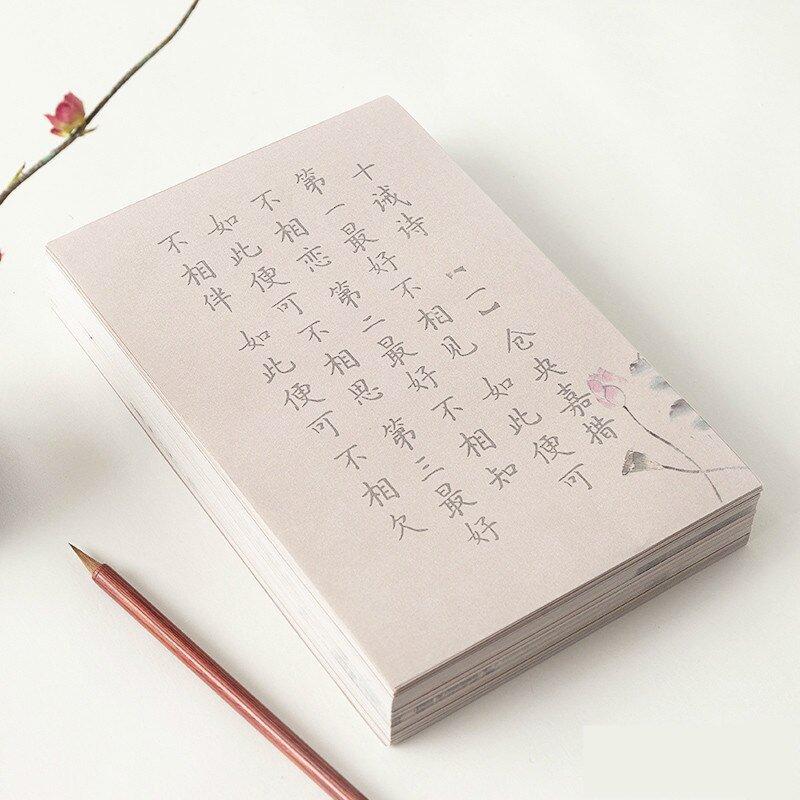 十诫诗【一】仓央嘉措
第一最好不相见如此便可
不相恋第二最好不相知
如此便可不相思第三最好
不相伴如此便可不相欠